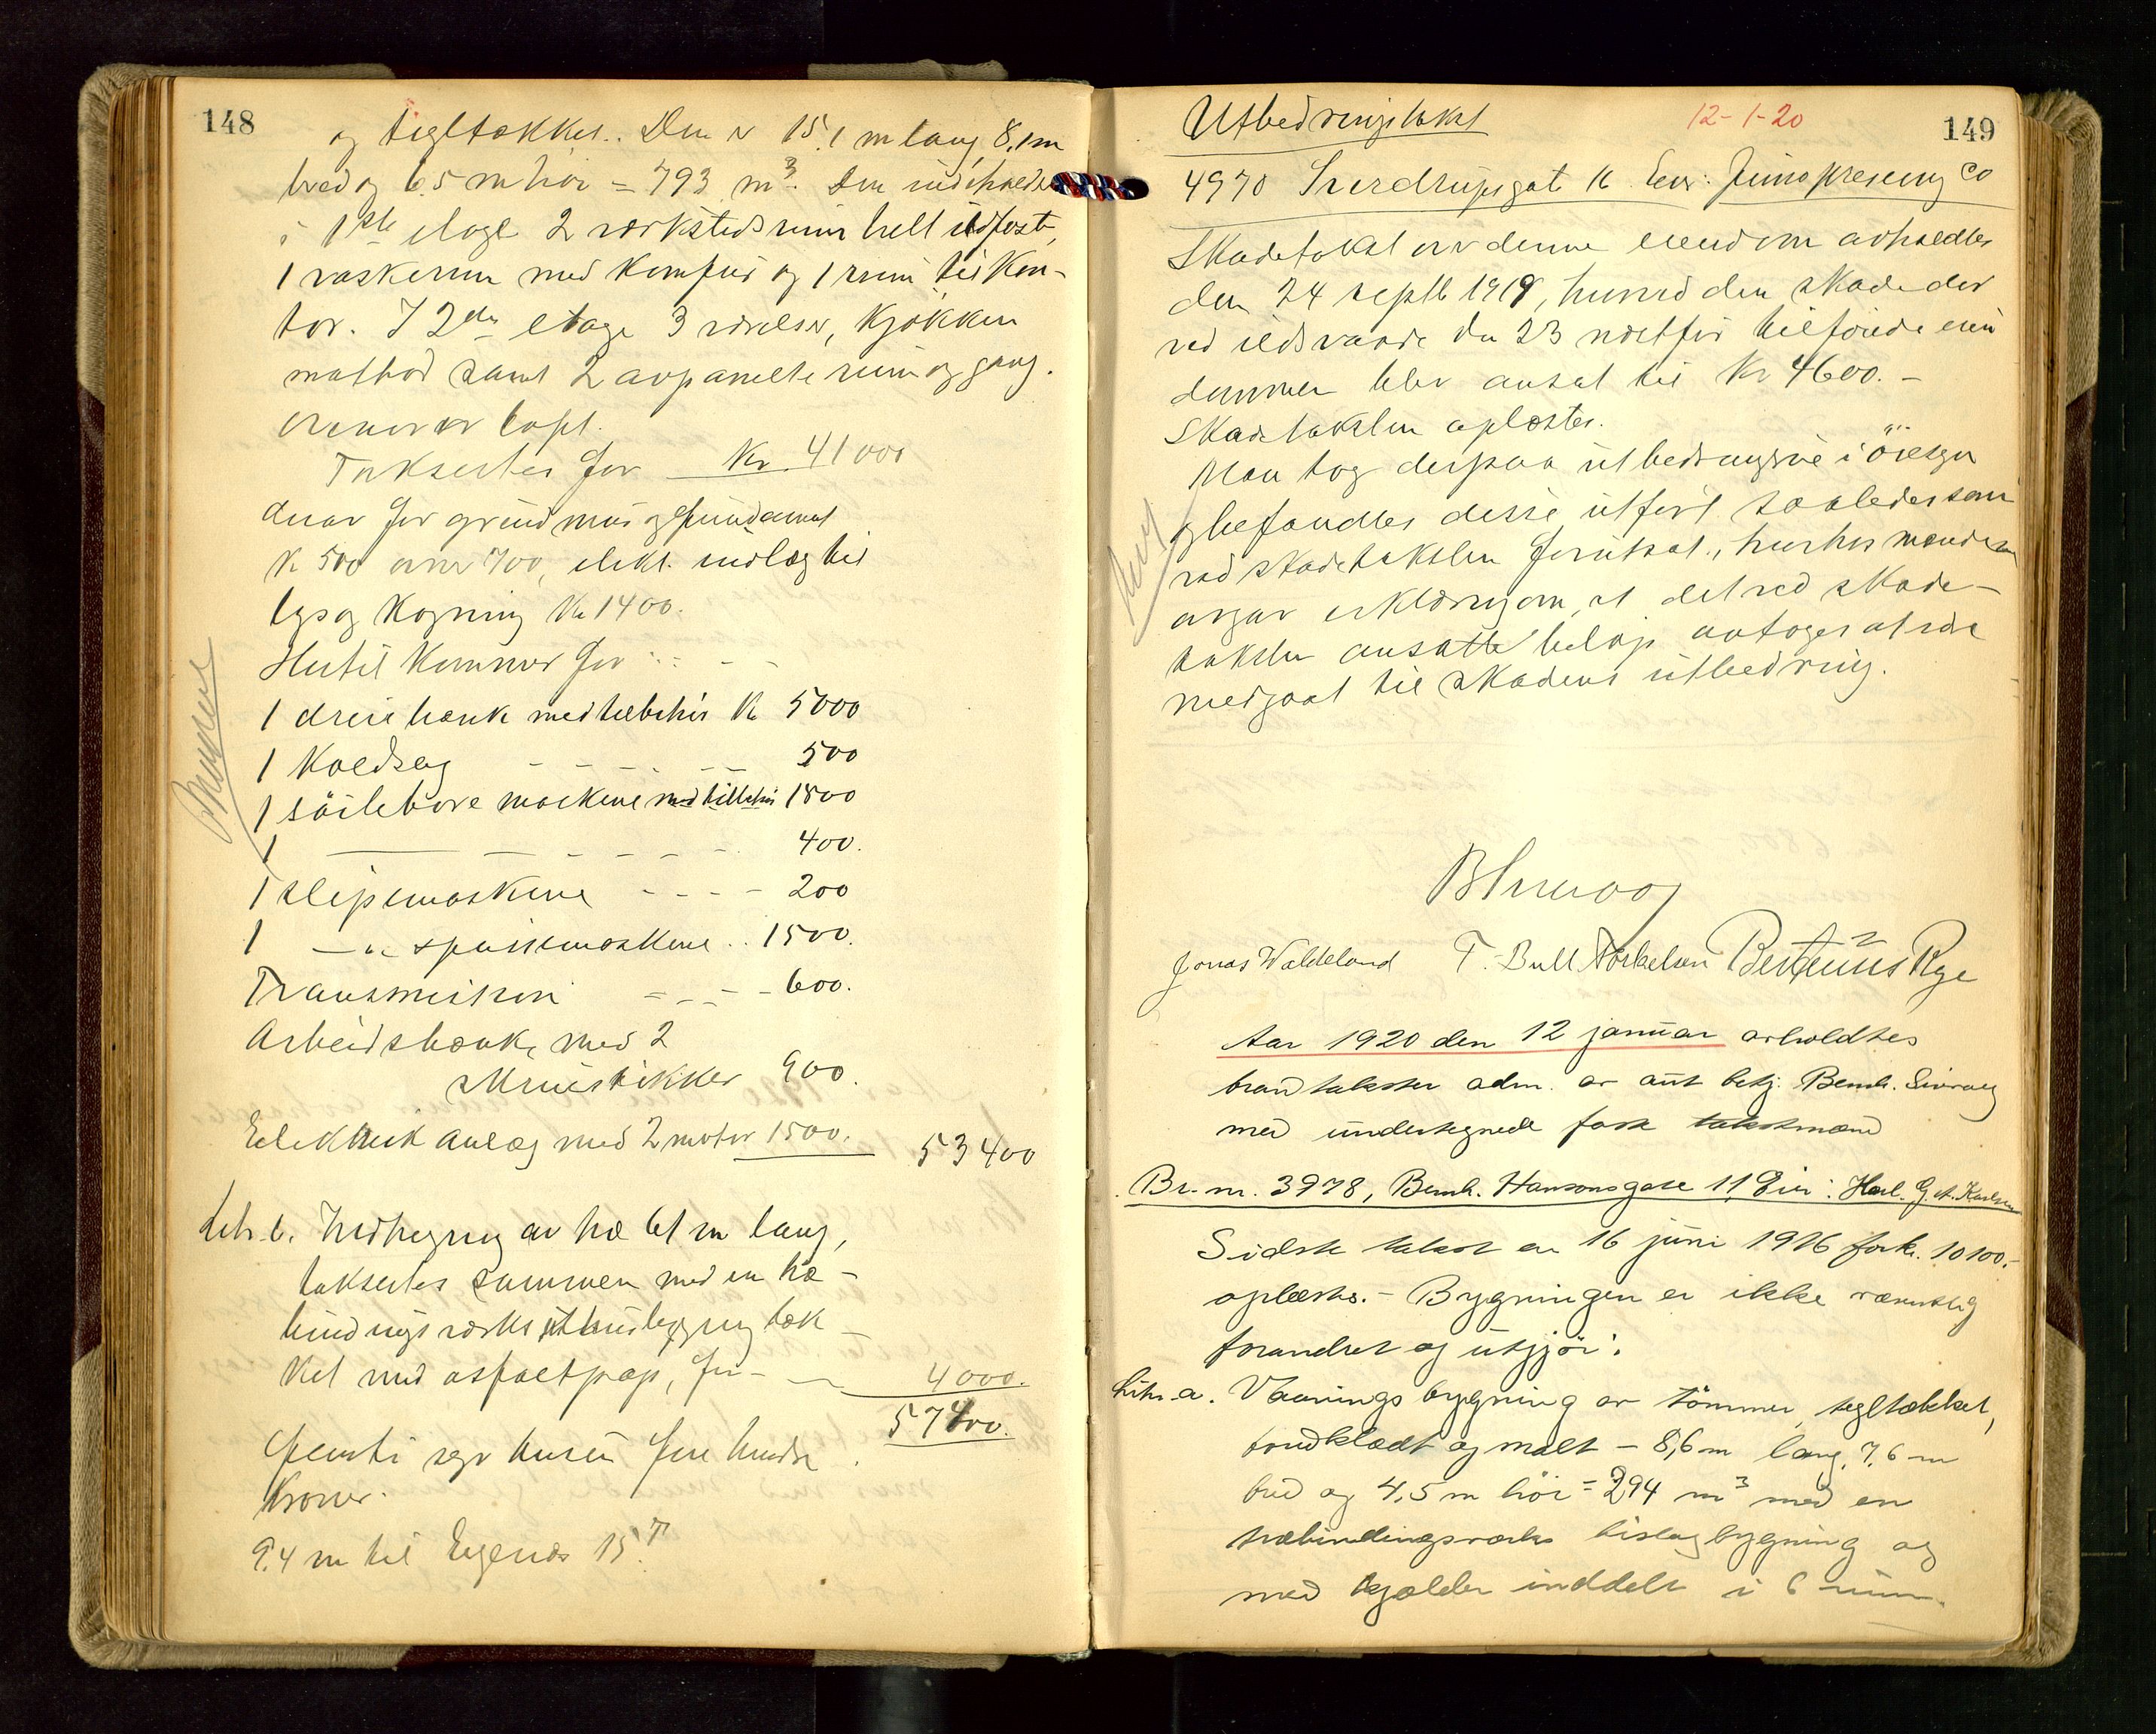 148
og tegltækket. Den er 15.1 m lang, 8.1 m
bred og 6.5 m høi = 793 m³. Den indeholder
i 1ste etage 2 verkstedsrum helt ildfast,
1 vaskerum med komfur og 1 rum til kon-
tor. I 2den etage 3 værelser, kjøkken
matbod samt 2 avpanelte rum og gang.
Ovenover loft.
Takseertes for Kr. 41000
Herav for grundmur og fundament
K 500 700, elekt. indlæg til
lys og kogning Kr 1400.
Hertil kommer for
1 dreiebænk med tilbehør Kr 5000
1 Koldsag 500
1 söileboremaskine med tilbehör 1800
1 — 400.
1 slipemaskine 200
1 — " spussemaskine .. 1500.
Transmission 600.
Arbeidsbænk med 2
skruestikker 900.
Elektrisk anlæg med 2 motor 1500. 53400
Litr. b. Indhegning av træ 61 m lang,
takseertes sammen med en træ-
bindingsverks uthusbygning tæk-
ket med asfaltpap, for — 4000.
57400.
Femti syv tusen fire hundre
Kroner.
9.4 m til Eiganes 15.
149
Utbedringstakst 12-1-20
4970 Sverdrupsgate 16. Eier: Co
Skadetakst over denne eiendom avholdtes
den 24 septb 1919, hvorved den skade der
ved ildsvaade den 23 næstfør tilføiedes eien
dommen blev ansat til Kr 4600.-
Skadetaksten oplæstes.
Man tog derpaa utbedringerne i öiesyn
og befandtes disse utført saaledes som
ved skadetaksten forutsat, hvorhos mændene
avgav erklæring om, at det ved skade-
taksten ansatte beløp antoges at være
medgaat til skadens utbedring.
Jonas Waldeland T. Bull Torkelsen Bertinius Rege
Aar 1920 den 12 januar avholdtes
brandtakster adm. av aut betj. Bernh.
med undertegnede faste takstmænd
Br. nr. 3978, Bernh. Hansonsgate 11 Eier: Harl. G. A. Karlsen
Sidste takst er 16 juni 1916 for k. 10100.-
oplæstes.- Bygningen er ikke væsentlig
forandret og utgjør:
Litr. a. Vaaningsbygning av tömmer, tegltækket,
bordklædt og malt - 8,6 m lang, 7,6 m
bred og 4,5 m höi = 294 m³ med en
træbindingsværks bislagbygning og
med kjælder inddelt i 6 rum.